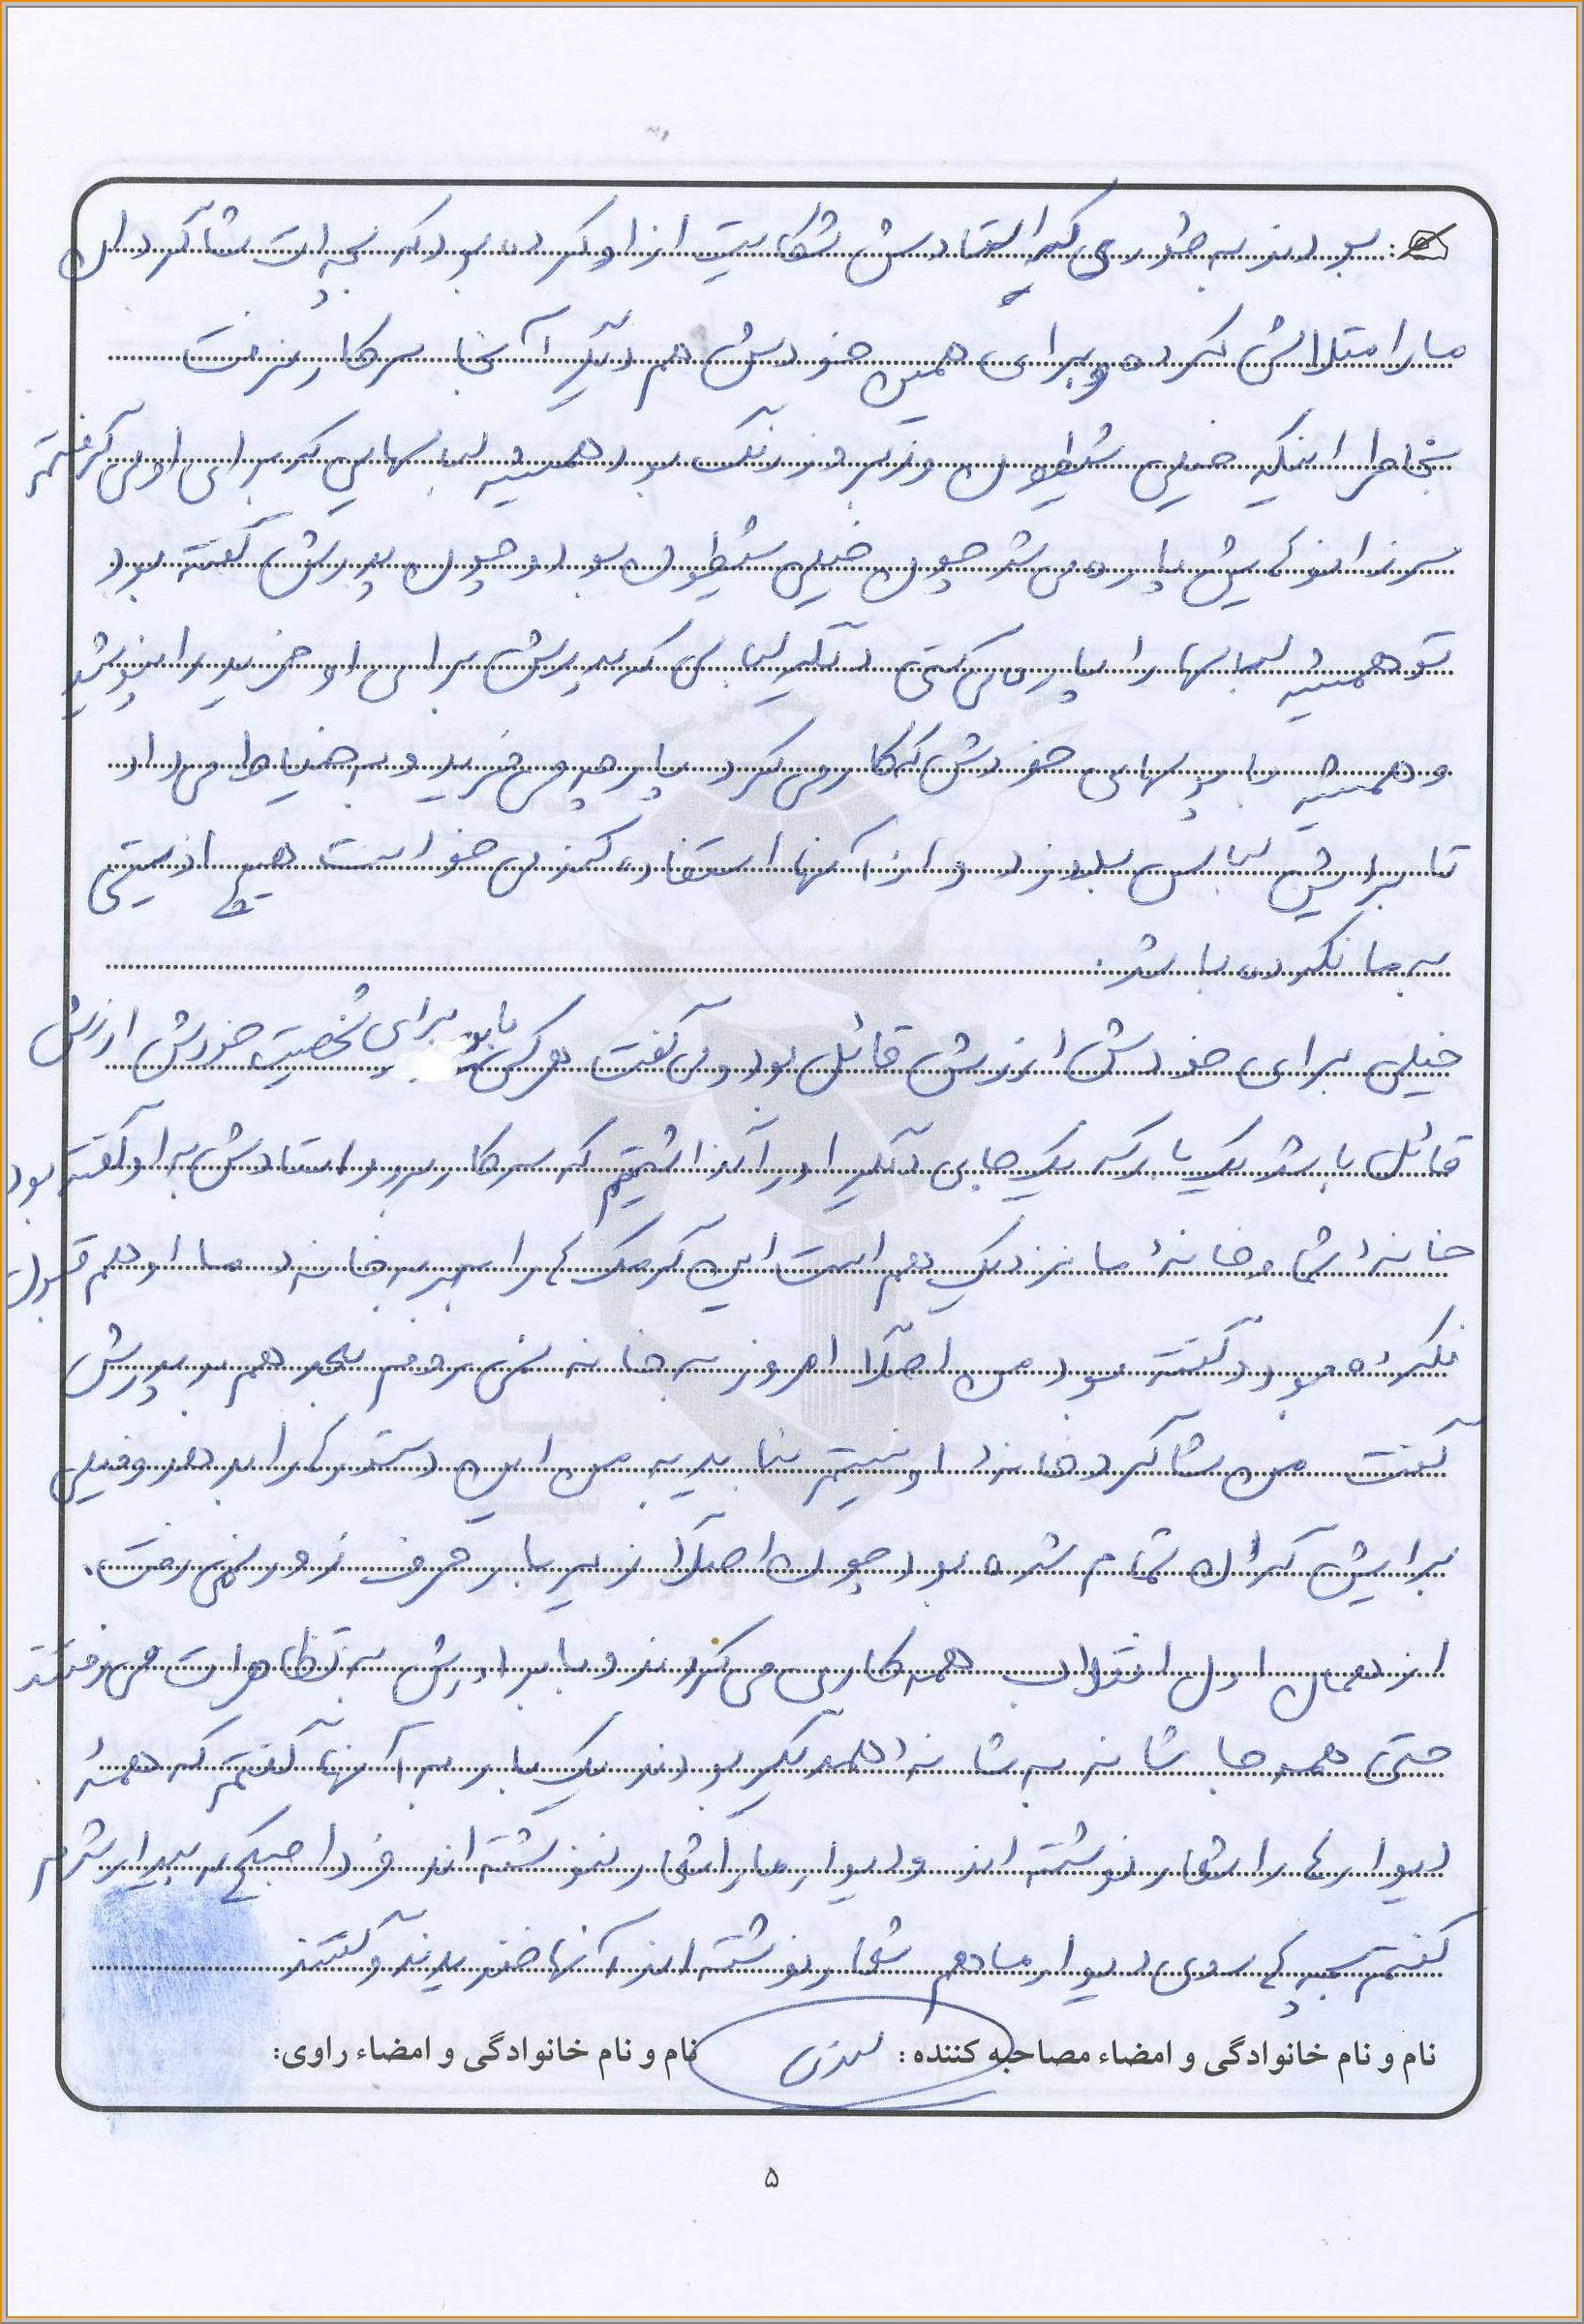 بودند به طوری که استادش شکایت از او کرده بود که بچه ات شاگردان
ما را متلاش کرده و برای همین خودش هم دیگر آنجا سر کار نرفت
بخاطر اینکه خیلی شیطون و زبر و زرنگ بود همیشه لباسهایی که برای او می گرفتم
سر زانوهایش پاره می شد چون خیلی شیطون بود و چون پدرش گفته بود
تو همیشه لباسها را پاره می کنی دیگر لباسی که پدرش برای او خرید را نپوشید
و همیشه با پولهای خودش که کار می کرد پارچه می خرید و به خیاط می داد
تا برایش لباس بدوزد و از آنها استفاده کند می خواست هیچ اذیتی
به ما نکرده باشد.
خیلی برای خودش ارزش قائل بود و می گفت هر کس باید برای شخصیت خودش ارزش
قائل باشد یک بار که یک جای دیگر او را گذاشتیم که سر کار برود استادش به او گفته بود
خانهٔ شما و خانهٔ ما نزدیک هم است این را ببر به خانه ما او هم قبول
نکرده بود و گفته بود من اصلاً امروز به خانه نمی روم بعد هم به پدرش
گفت من شاگرد خانهٔ او نیستم نباید به من این دستورها را بدهد و خیلی
برایش گران تمام شده بود چون اصلاً زیر بار حرف زور نمی رفت.
از همان اول انقلاب همه کاری می کردند و با برادرش به تظاهرات می رفتند
حتی همه جا شانه به شانهٔ همدیگر بودند یک بار به آنها گفتم که همهٔ
دیوارها را شعار نوشته اند و دیوار ما را شعار ننوشته اند فردا صبح که بیدار شدم
گفتم بچه ها روی دیوار ما هم شعار نوشته اند آنها خندیدند و گفتند
نام و نام خانوادگی و امضاء مصاحبه کننده: نام و نام خانوادگی و امضاء راوی:
۵